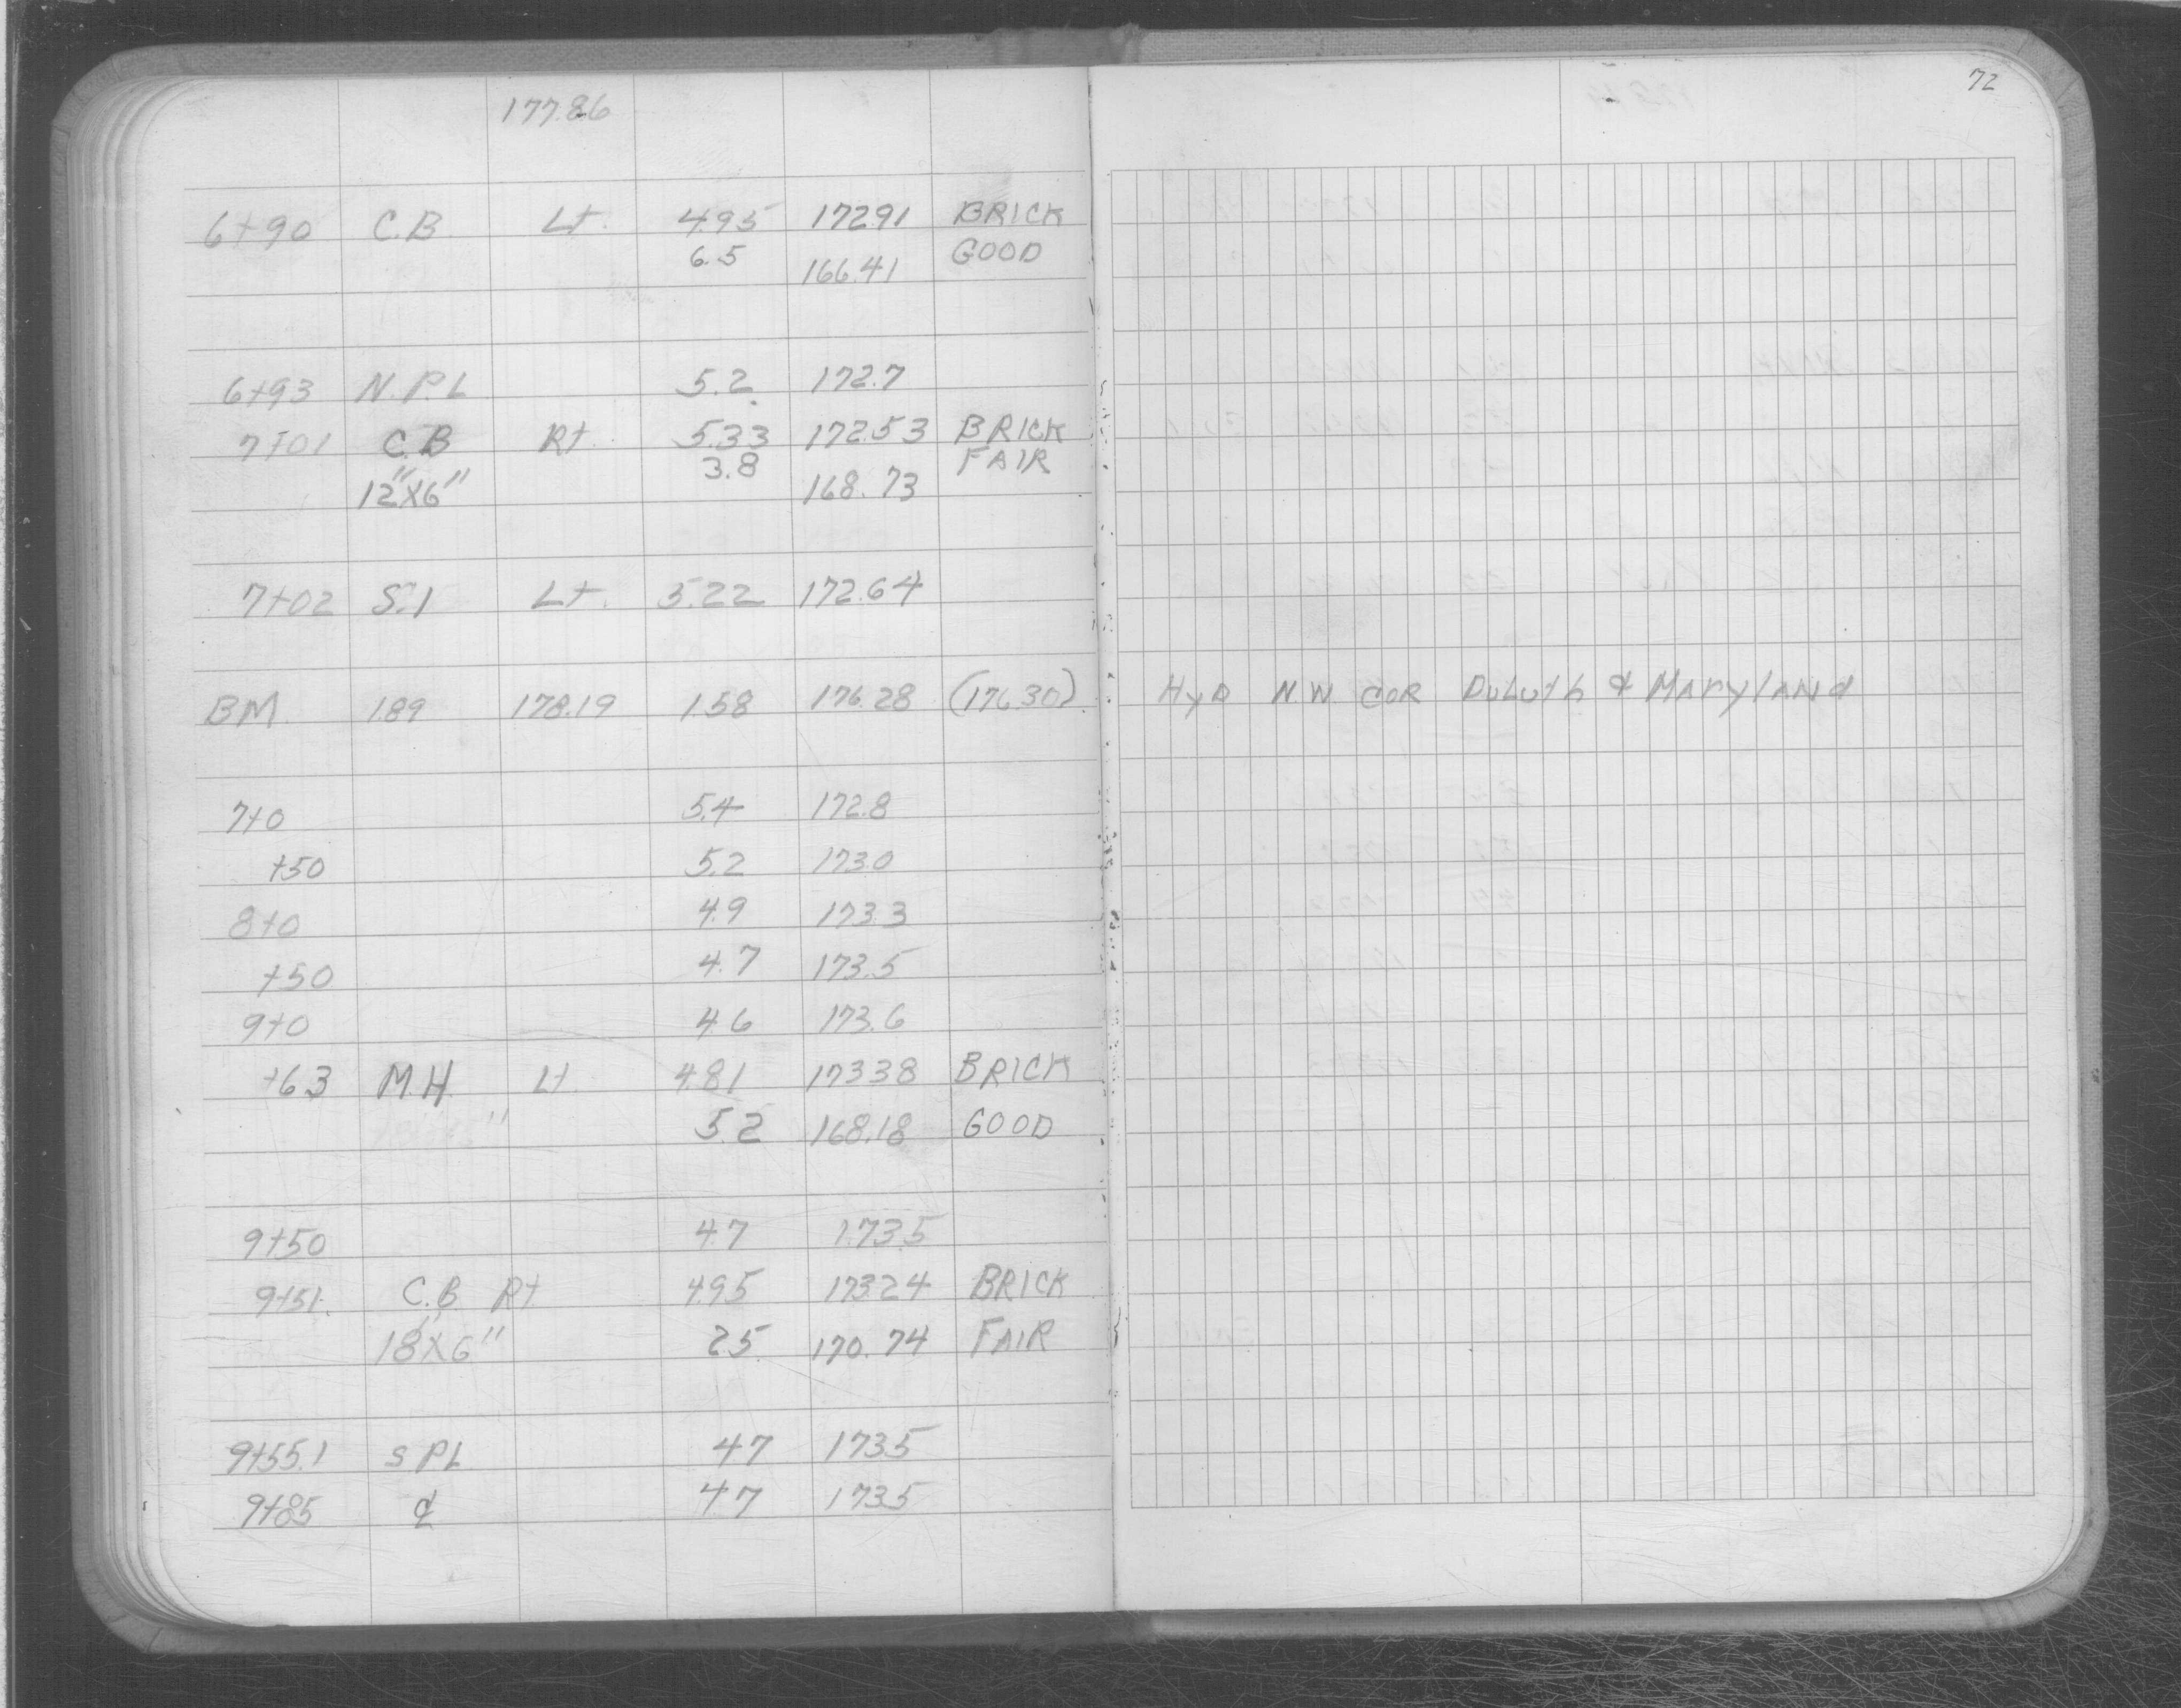 72
177.86
6+90 C.B. Lt. 4.95 172.91 BRICK
6.5 166.41 GOOD
6+93 N.P.L 5.2 172.7
7+01 C.B Rt. 5.33 172.53 BRICK
12"X6" 3.8 168.73 FAIR
7+02 S.I Lt. 5.22 172.64
BM 1.89 178.19 1.58 176.28 (176.30) HyD N.W. COR DuLuth & MAryLANd
7+0 5.4 172.8
+50 5.2 173.0
8+0 4.9 173.3
+50 4.7 173.5
9+0 4.6 173.6
+63 M.H. Lt 4.81 173.38 BRICK
5.2 168.18 GOOD
9+50 4.7 173.5
9+51 C.B. Rt 4.95 173.24 BRICK
18"X6" 2.5 170.74 FAIR
9+55.1 S PL 4.7 173.5
9+85 ₵ 4.7 173.5